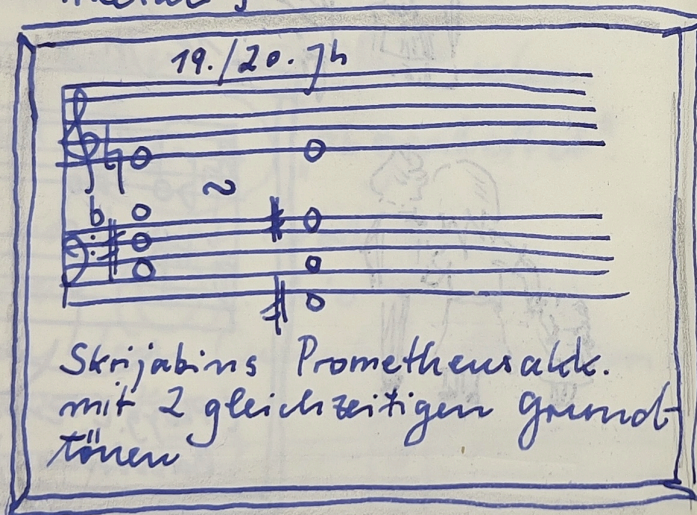 19./20. Jh
Skrijabins Prometheusakk.
mit 2 gleichzeitigen Grund-
tönen